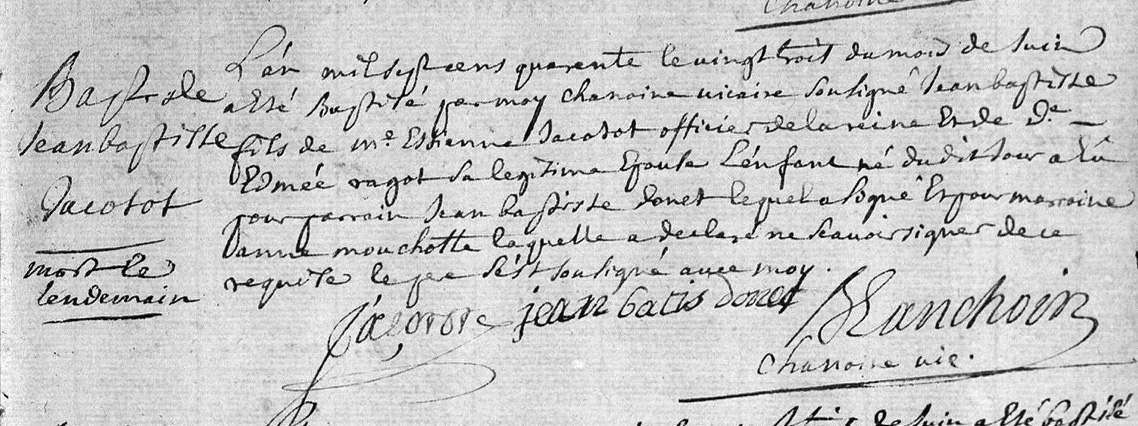 Chanoine
Baptr de
Jeanbaptiste
Jacotot
mort le
lendemain
L'an mil sept cens quarente le vingt trois du mois de Juin
a Eté Baptisé par moy chanoine vicaire soussigné Jean baptiste
fils de mr. Estienne Jacotot officier de la reine Et de De
Edmée ragot sa legitime Epouse L'enfant né du dit Jour a Eû
pour parrain Jean baptiste donet lequel a signé Et pour marraine
Janne mouchotte laquelle a declaré ne scavoir signer de ce
requise le pere s'est soussigné avec moy.
Jacotot jean batis donet
Lanchoin
Chanoine vic.
de Juin a Eté baptisé